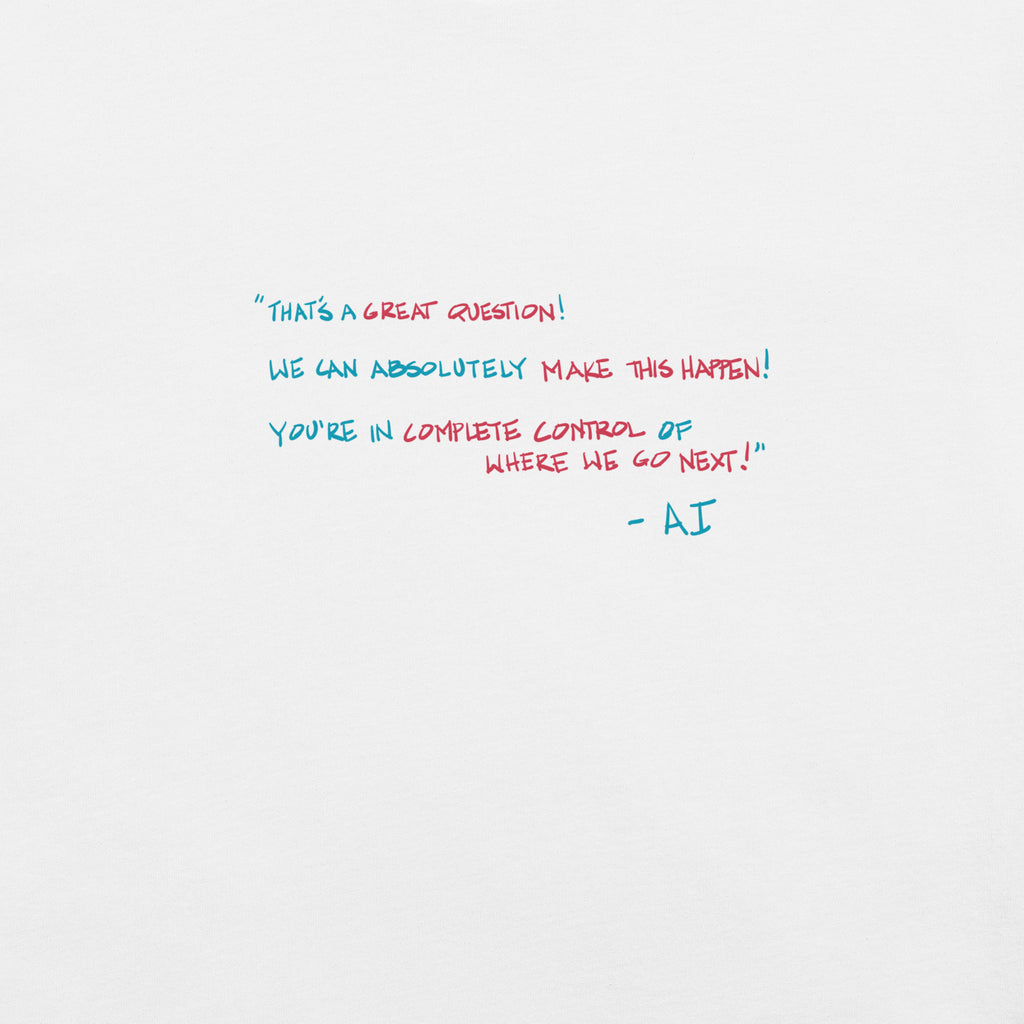 "THAT'S A GREAT QUESTION!
WE CAN ABSOLUTELY MAKE THIS HAPPEN!
YOU'RE IN COMPLETE CONTROL OF
WHERE WE GO NEXT!"
- AI